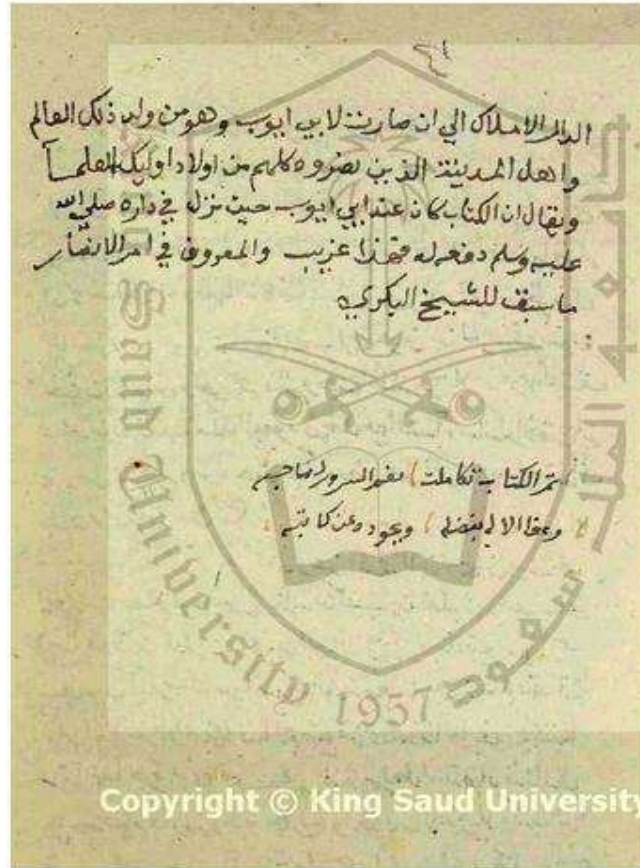 الدار الاملاك الي ان صارت لابي ايوب وهو من ولد ذلك العالم
واهل المدينة الذين نصروه كلهم من اولاد اوليك العلمآ
ويقال ان الكتاب كان عند ابي ايوب حيث نزل في داره صلي الله
عليه وسلم دفعه له فهذا غريب والمعروف في امر الانصار
ما سبق للشيخ البكري
تم الكتاب تكاملت نعم السرور لصاحبه
وعفا الاله بفضله وبجوده عن كاتبه
جامعة الملك سعود
King Saud University 1957
Copyright © King Saud University